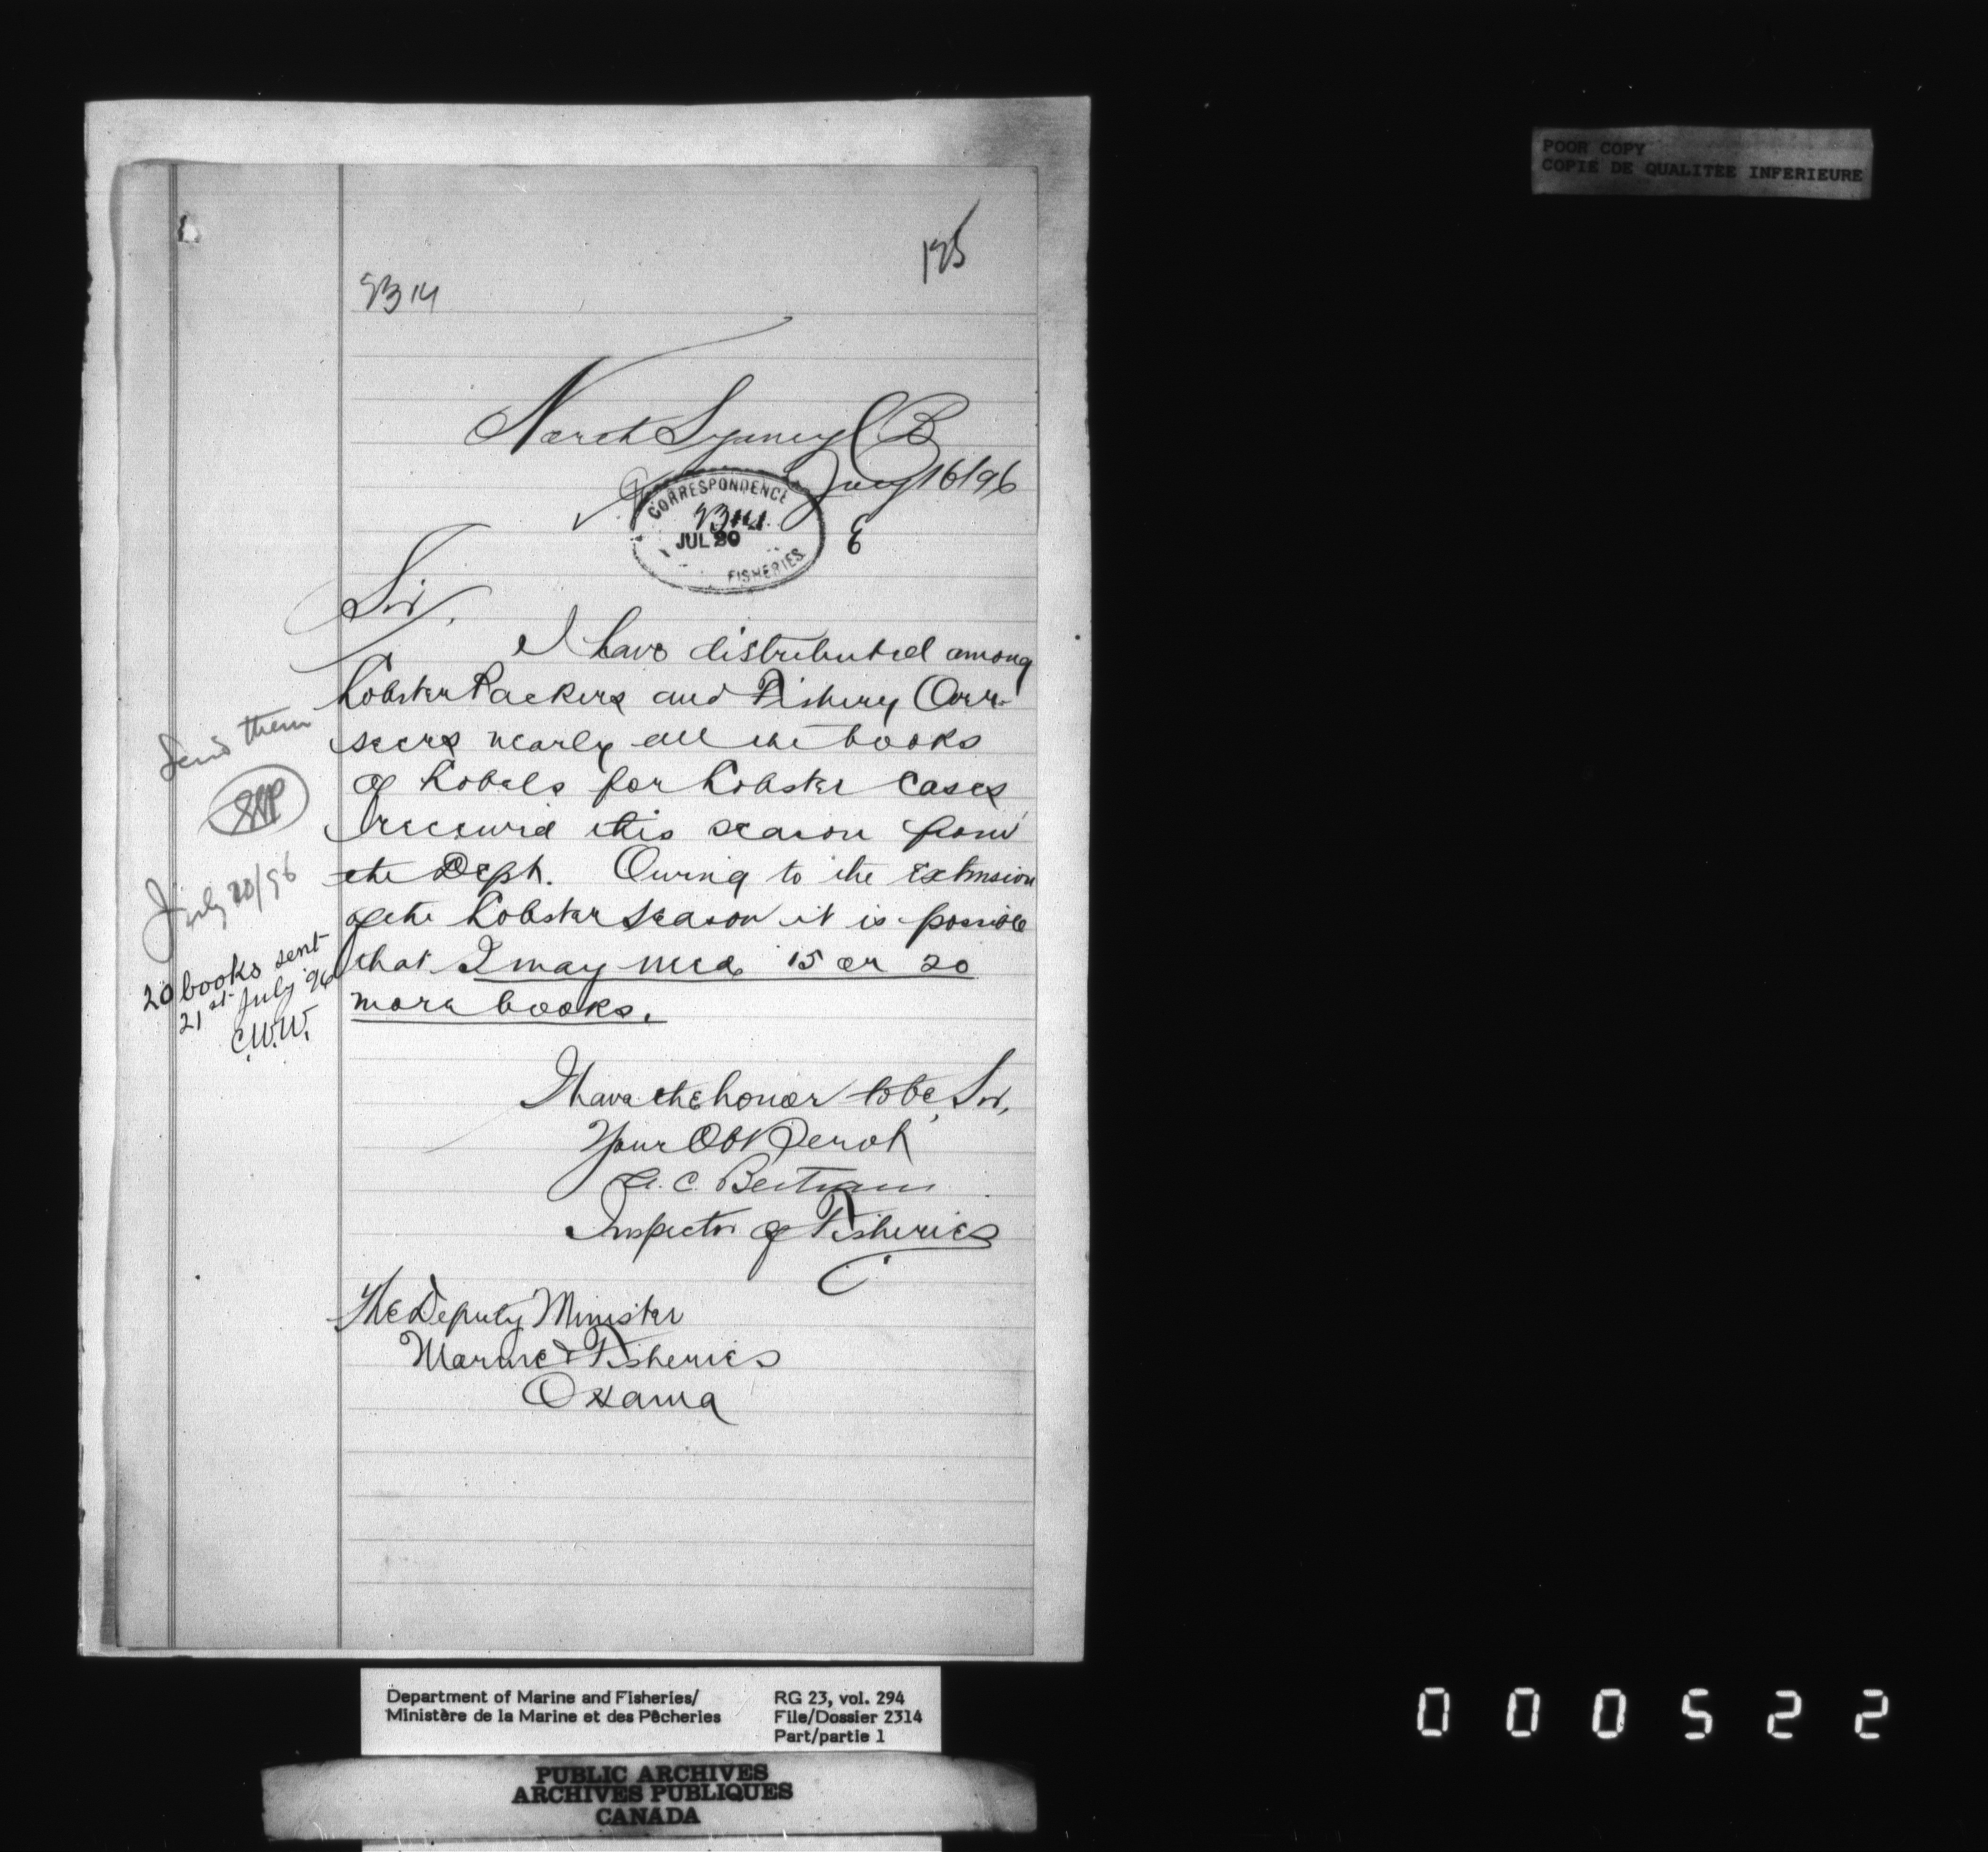 POOR COPY
COPIE DE QUALITEE INFERIEURE
2314
North Sydney CB
July 16/96
CORRESPONDENCE
2314
JUL 20
FISHERIES
Sir,
I have distributed among
Lobster Packers and Fishery Over-
seers nearly all the books
of Labels for Lobster Cases
received this season from
the Dept. Owing to the Extension
of the Lobster Season it is possible
that I may need 15 or 20
more books.
I have the honor to be, Sir,
Your Obt Servt
A. C. Bertram
Inspector of Fisheries
The Deputy Minister
Marine & Fisheries
Ottawa
Send them
July 20/96
20 books sent
21st July '96
C.W.W.
Department of Marine and Fisheries/
Ministère de la Marine et des Pêcheries
RG 23, vol. 294
File/Dossier 2314
Part/partie 1
PUBLIC ARCHIVES
ARCHIVES PUBLIQUES
CANADA
000522